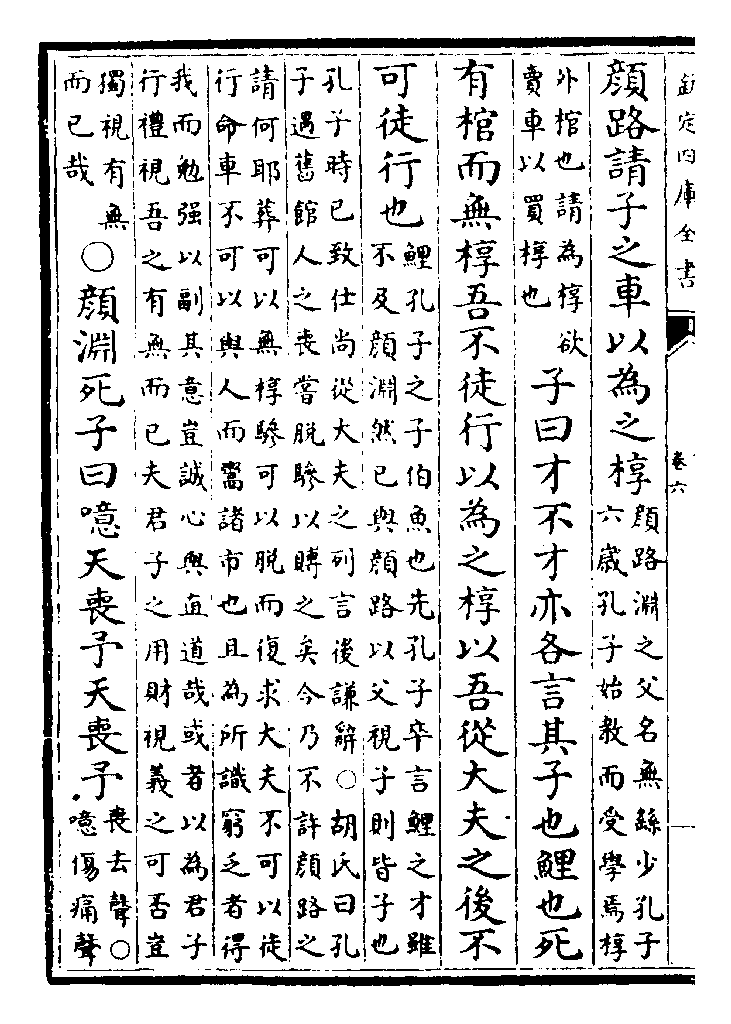 欽定四庫全書
卷六
顔路請子之車以爲之椁顔路淵之父名無繇少孔子
六歲孔子始教而受學焉椁
外棺也請爲椁欲
賣車以買椁也
子曰才不才亦各言其子也鯉也死
有棺而無椁吾不徒行以爲之椁以吾從大夫之後不
可徒行也鯉孔子之子伯魚也先孔子卒言鯉之才雖
不及顔淵然已與顔路以父視子則皆子也
孔子時已致仕尚從大夫之列言後謙辭○胡氏曰孔
子遇舊館人之喪嘗脱驂以賻之矣今乃不許顔路之
請何耶葬可以無椁驂可以脱而復求大夫不可以徒
行命車不可以與人而鬻諸市也且爲所識窮乏者得
我而勉强以副其意豈誠心與直道哉或者以爲君子
行禮視吾之有無而已夫君子之用財視義之可否豈
獨視有無
而已哉
○顔淵死子曰噫天喪予天喪予喪去聲○
噫傷痛聲